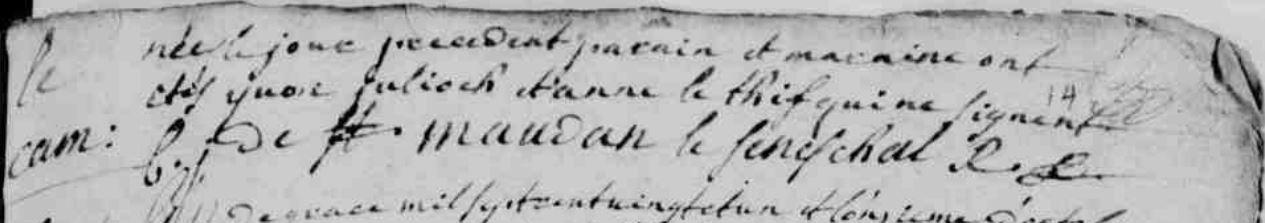 le née le jour precedent parain et maraine ont
etés yuon julioch et anne le thifquine signent
14
cam: de st maudan le seneschal R.
de grace mil sept cent uingt et un et l'onzieme d'octob